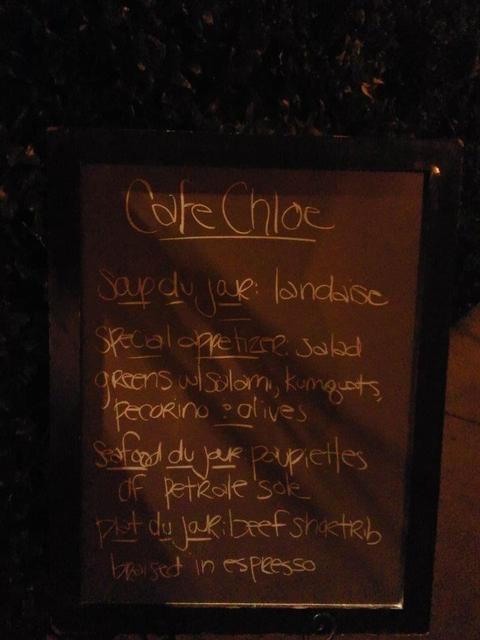 Cafe Chloe
Soup du jour: landaise
special appetizer: salad
greens w/ salami, kumquats,
pecorino & olives
Seafood du jour paupiettes
of petrale sole
plat du jour: beef shortrib
braised in espresso